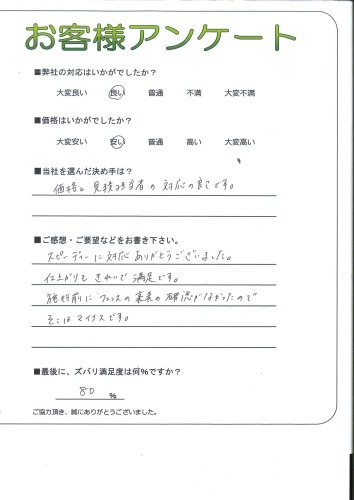 お客様アンケート
■弊社の対応はいかがでしたか？
大変良い 良い 普通 不満 大変不満
■価格はいかがでしたか？
大変安い 安い 普通 高い 大変高い
■当社を選んだ決め手は？
価格と見積担当者の対応の良さです。
■ご感想・ご要望などをお書き下さい。
スピーディーに対応ありがとうございました。
仕上がりもきれいで満足です。
施工前にフェンスの高さの確認がなかったので
そこはマイナスです。
■最後に、ズバリ満足度は何％ですか？
80 ％
ご協力頂き、誠にありがとうございました。